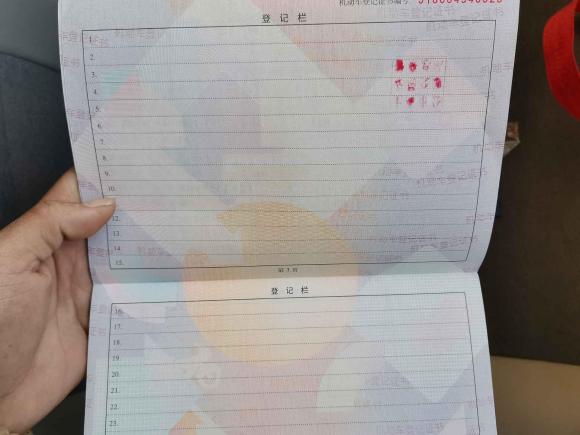 机动车登记证书编号
登记栏
1.
2.
3.
4.
5.
6.
7.
8.
9.
10.
12.
13.
14.
15.
第 3 页
登记栏
16.
17.
18.
19.
20.
21.
22.
23.
机动车登记证书